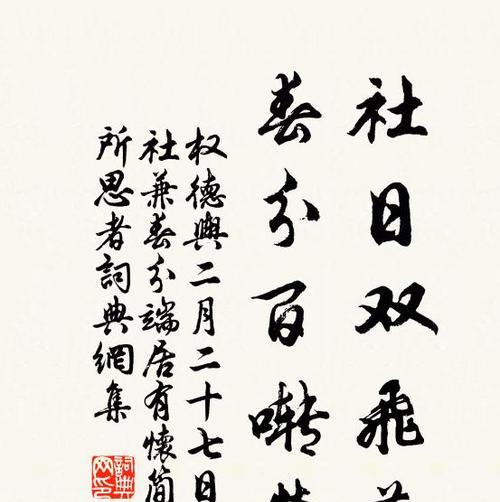 社日双飞
春分百啭
权德舆二月二十七日
社兼春分端居有怀简
所思者词典網集